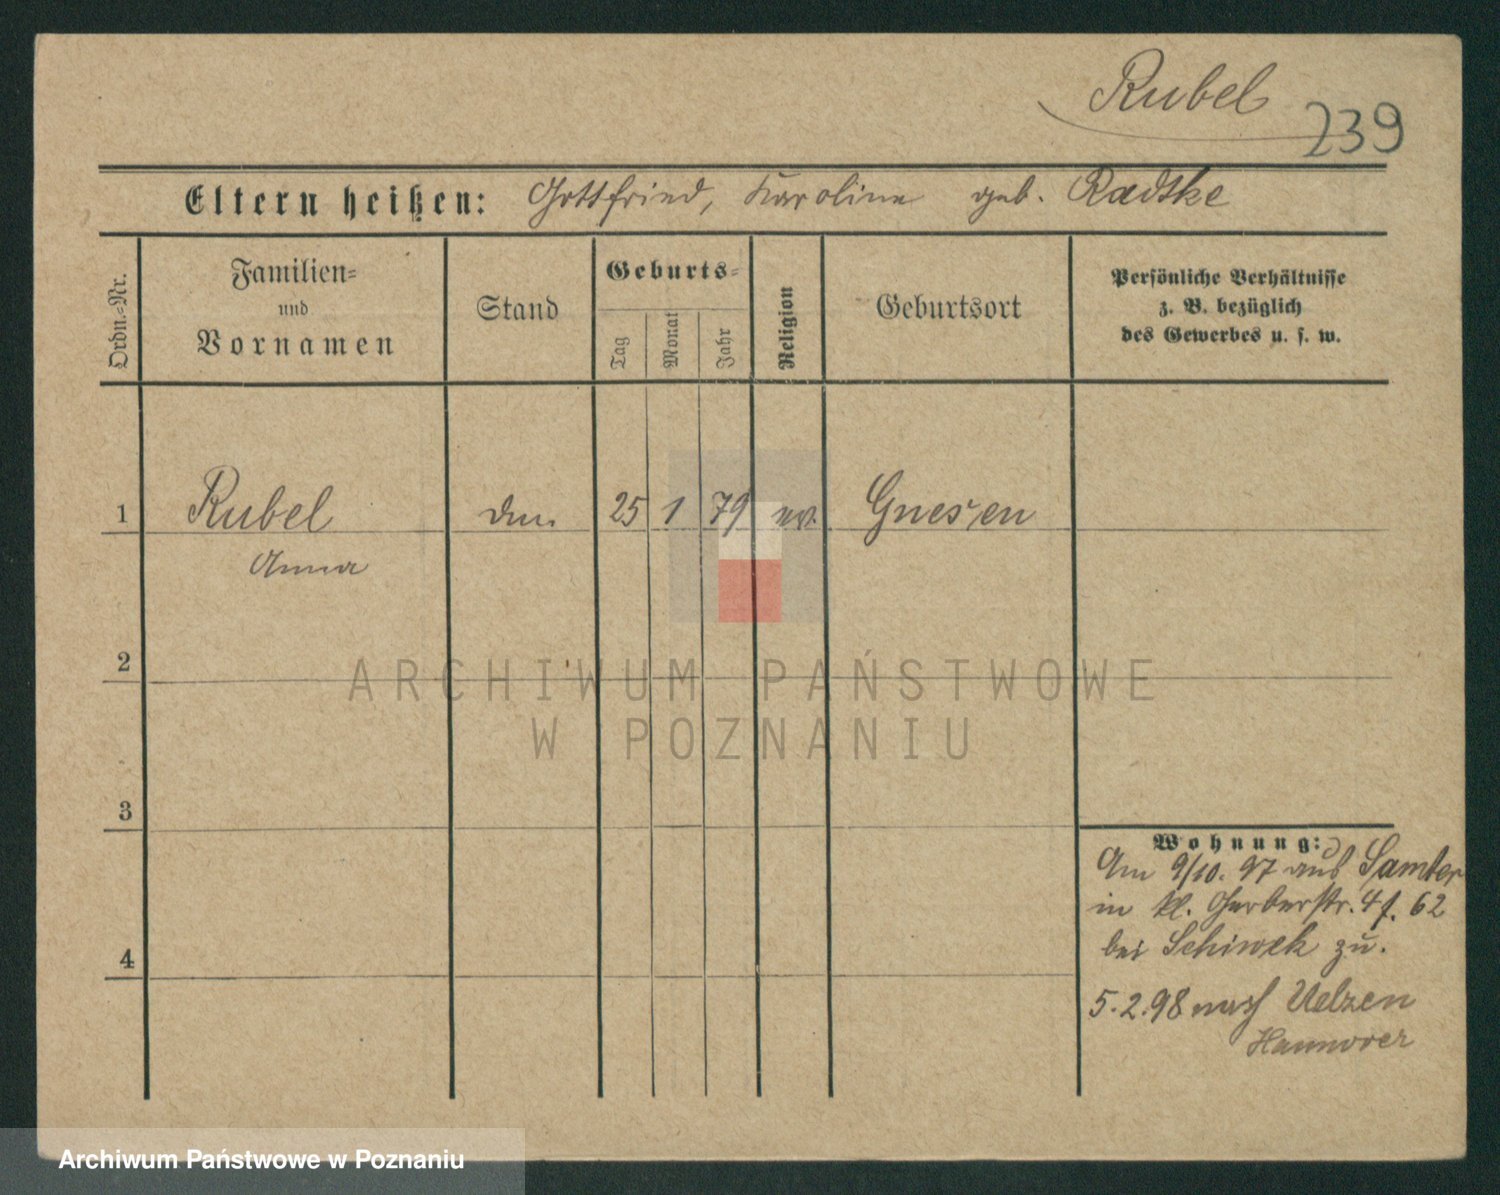 Rubel
239
Eltern heißen: Gottfried, Karoline geb. Radtke
Ordn.-Nr.
Familien-
und
Vornamen
Stand
Geburts-
Tag
Monat
Jahr
Religion
Geburtsort
Persönliche Verhältnisse
z. B. bezüglich
des Gewerbes u. s. w.
1 Rubel 25 1 79 ev. Gnesen
Anna
2
ARCHIWUM PAŃSTWOWE
W POZNANIU
3
Wohnung:
Am 9/10. 97 aus Samter
in kl. Gerberstr. 4 f. 62
bei Schiwek zu.
4
5.2.98 nach Uelzen
Hannover
Archiwum Państwowe w Poznaniu